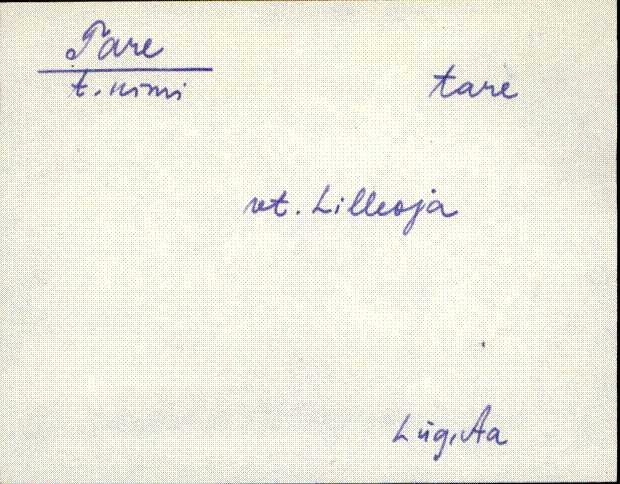 Tare
t. nimi
tare
vt. Lilleoja
Lüg, Aa